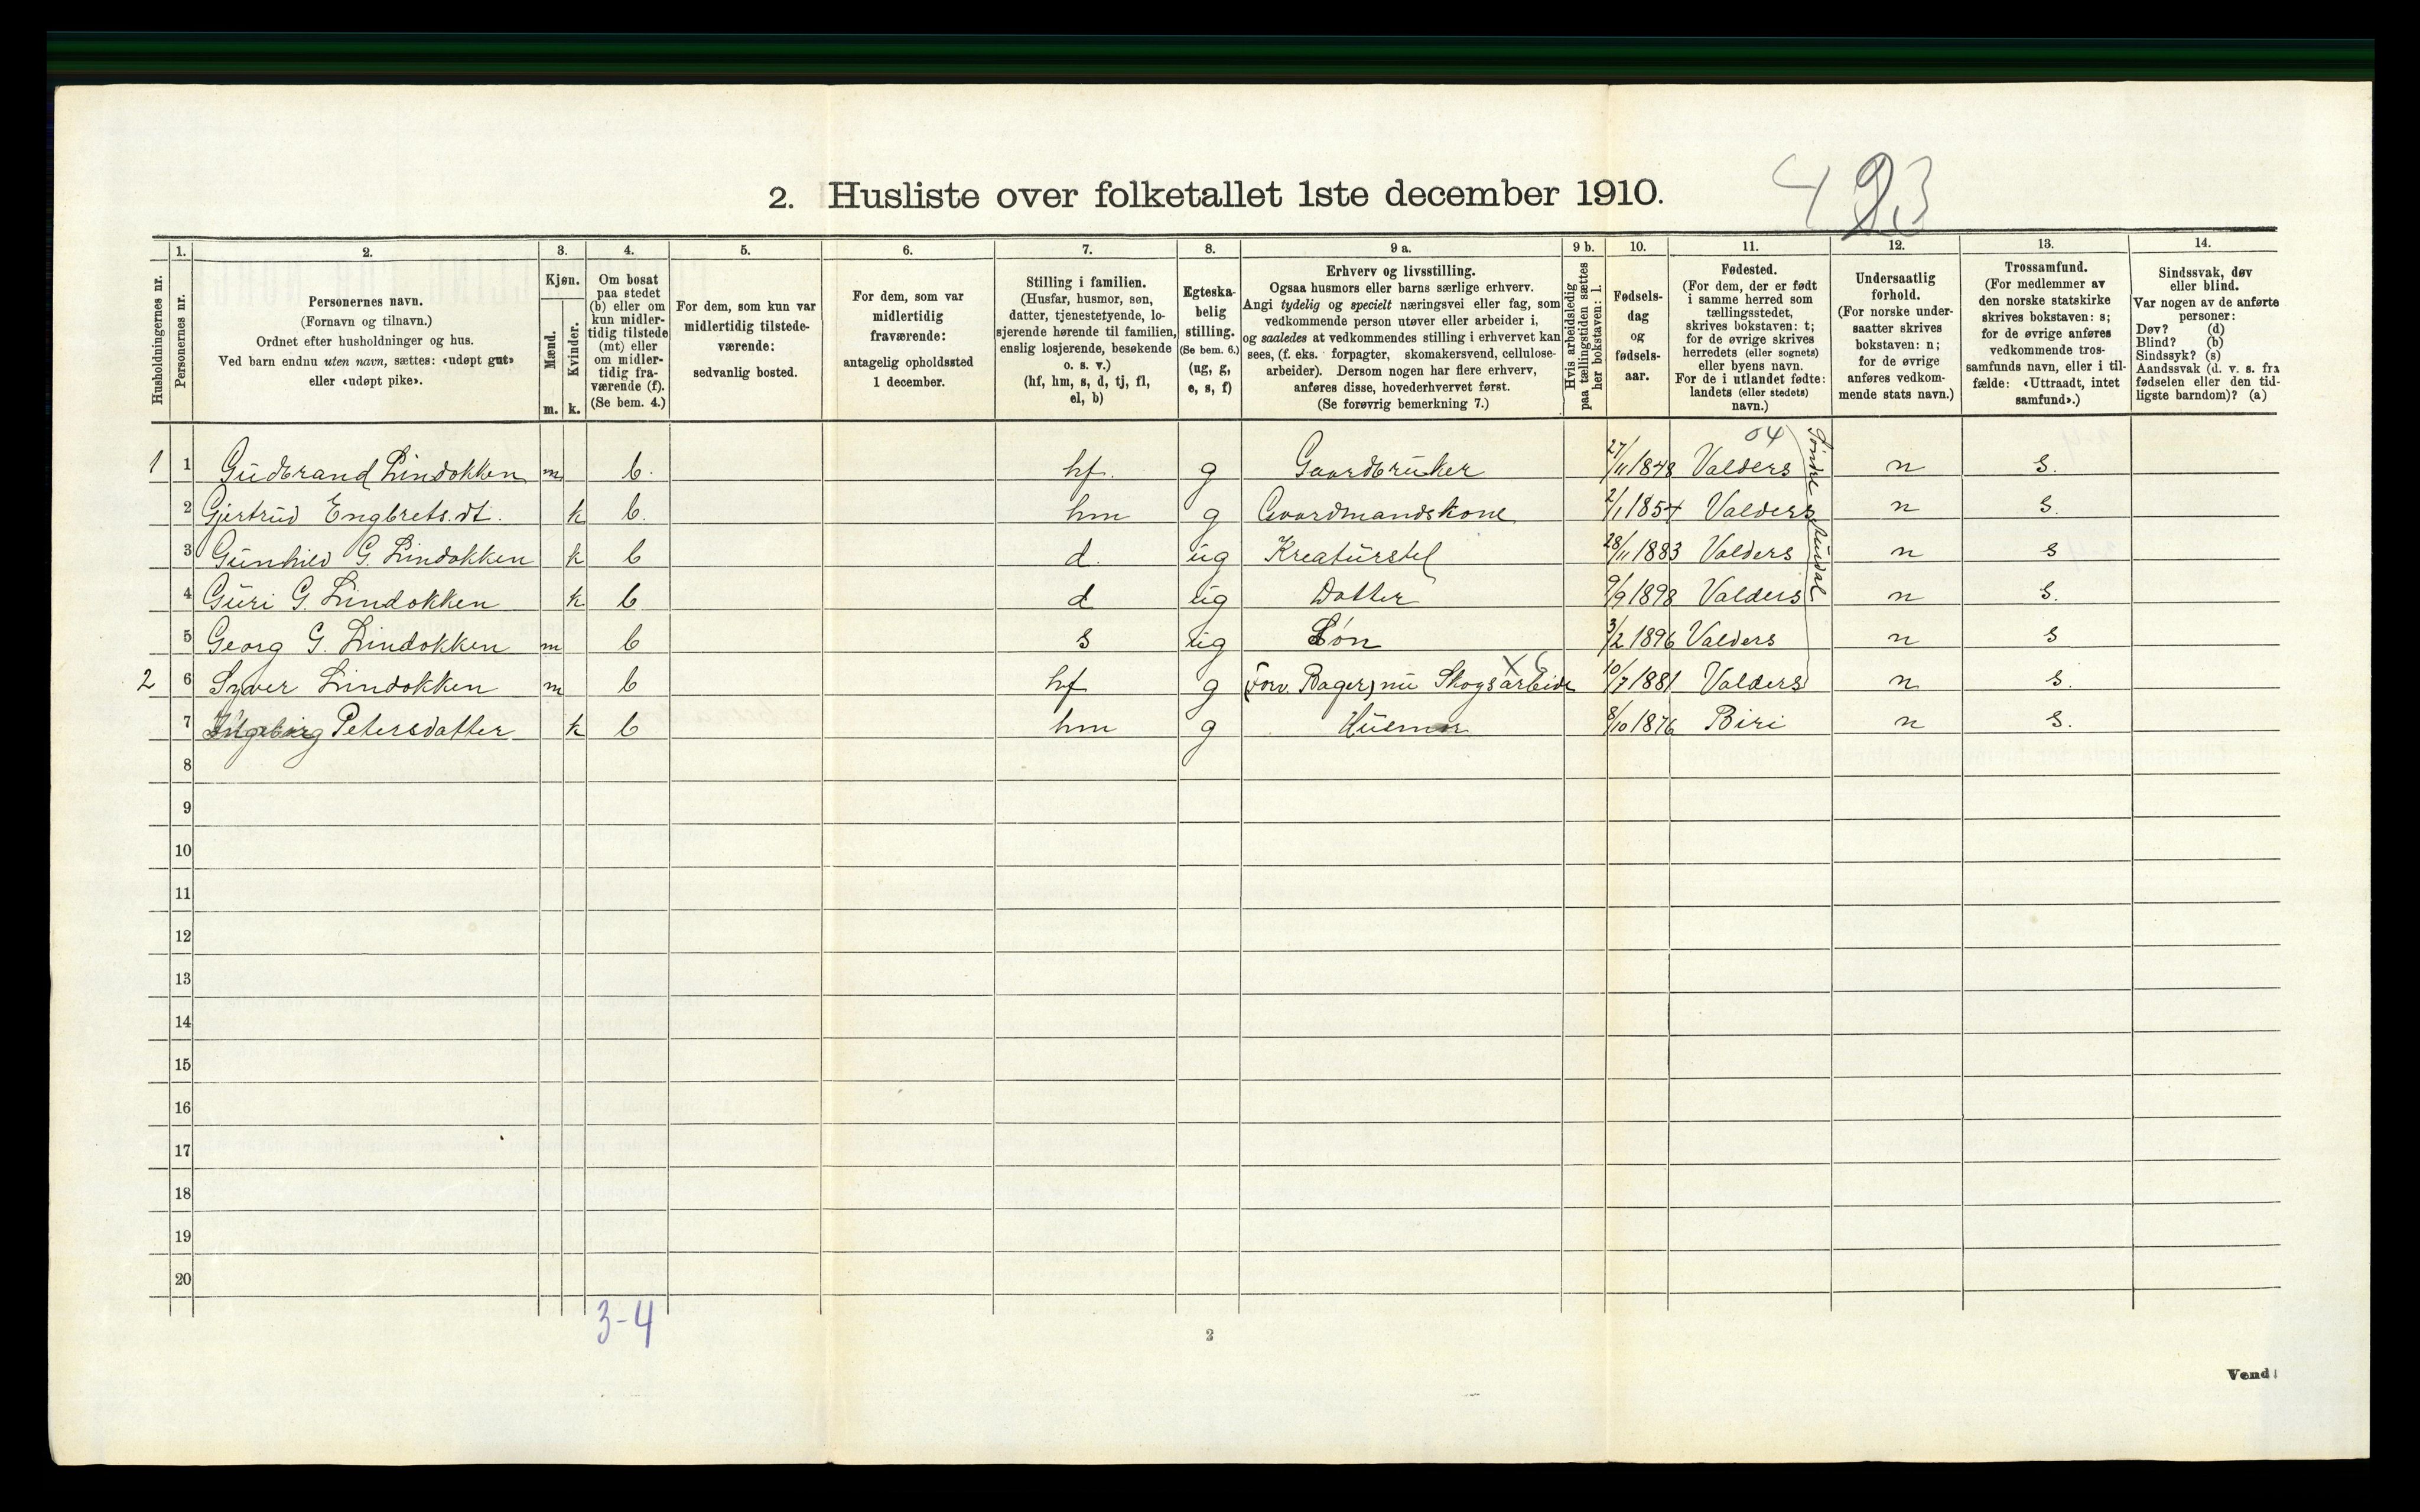 2. Husliste over folketallet 1ste december 1910.
Husholdningernes nr.
1. Personernes nr.
2. Personernes navn.
(Fornavn og tilnavn.)
Ordnet efter husholdninger og hus.
Ved barn endnu uten navn, sættes: «udøpt gut»
eller «udøpt pike».
3. Kjøn.
Mænd. m.
Kvinder. k.
4. Om bosat
paa stedet
(b) eller om
kun midler-
tidig tilstede
(mt) eller
om midler-
tidig fra-
værende (f).
(Se bem. 4.)
5. For dem, som kun var
midlertidig tilstede-
værende:
sedvanlig bosted.
6. For dem, som var
midlertidig
fraværende:
antagelig opholdssted
1 december.
7. Stilling i familien.
(Husfar, husmor, søn,
datter, tjenestetyende, lo-
sjerende hørende til familien,
enslig losjerende, besøkende
o. s. v.)
(hf, hm, s, d, tj, fl,
el, b)
8. Egteska-
belig
stilling.
(Se bem. 6.)
(ug, g,
e, s, f)
9 a. Erhverv og livsstilling.
Ogsaa husmors eller barns særlige erhverv.
Angi tydelig og specielt næringsvei eller fag, som
vedkommende person utøver eller arbeider i,
og saaledes at vedkommendes stilling i erhvervet kan
sees, (f. eks. forpagter, skomakersvend, cellulose-
arbeider). Dersom nogen har flere erhverv,
anføres disse, hovederhvervet først.
(Se forøvrig bemerkning 7.)
9 b. Hvis arbeidsledig
paa tællingstiden sættes
her bokstaven: l.
10. Fødsels-
dag
og
fødsels-
aar.
11. Fødested.
(For dem, der er født
i samme herred som
tællingsstedet,
skrives bokstaven: t;
for de øvrige skrives
herredets (eller sognets)
eller byens navn.
For de i utlandet fødte:
landets (eller stedets)
navn.)
12. Undersaatlig
forhold.
(For norske under-
saatter skrives
bokstaven: n;
for de øvrige
anføres vedkom-
mende stats navn.)
13. Trossamfund.
(For medlemmer av
den norske statskirke
skrives bokstaven: s;
for de øvrige anføres
vedkommende tros-
samfunds navn, eller i til-
fælde: «Uttraadt, intet
samfund».)
14. Sindssvak, døv
eller blind.
Var nogen av de anførte
personer:
Døv? (d)
Blind? (b)
Sindssyk? (s)
Aandssvak (d. v. s. fra
fødselen eller den tid-
ligste barndom)? (a)
04
1 1 Gudbrand Lindokken m b. hf. g Gaardbruker 27/11 1848 Valders n s.
2 Gjertrud Engbrets.dt. k b. hm g Gaardmandskone 2/1 1854 Valders n s.
3 Gunhild G. Lindokken k b d. ug Kreaturstel 28/11 1883 Valders n s
4 Guri G. Lindokken k b d ug Datter 9/9 1898 Valders n s.
5 Georg G. Lindokken m b s ug Søn 3/2 1896 Valders n s
2 6 Syver Lindokken m b hf g (Forv. Bager) nu Skogsarbeide 10/7 1881 Valders n s.
7 Ingeborg Petersdatter k b hm g Husmor 8/10 1876 Biri n s.
8
9
10
11
12
13
14
15
16
17
18
19
20
3-4
2
Vend!